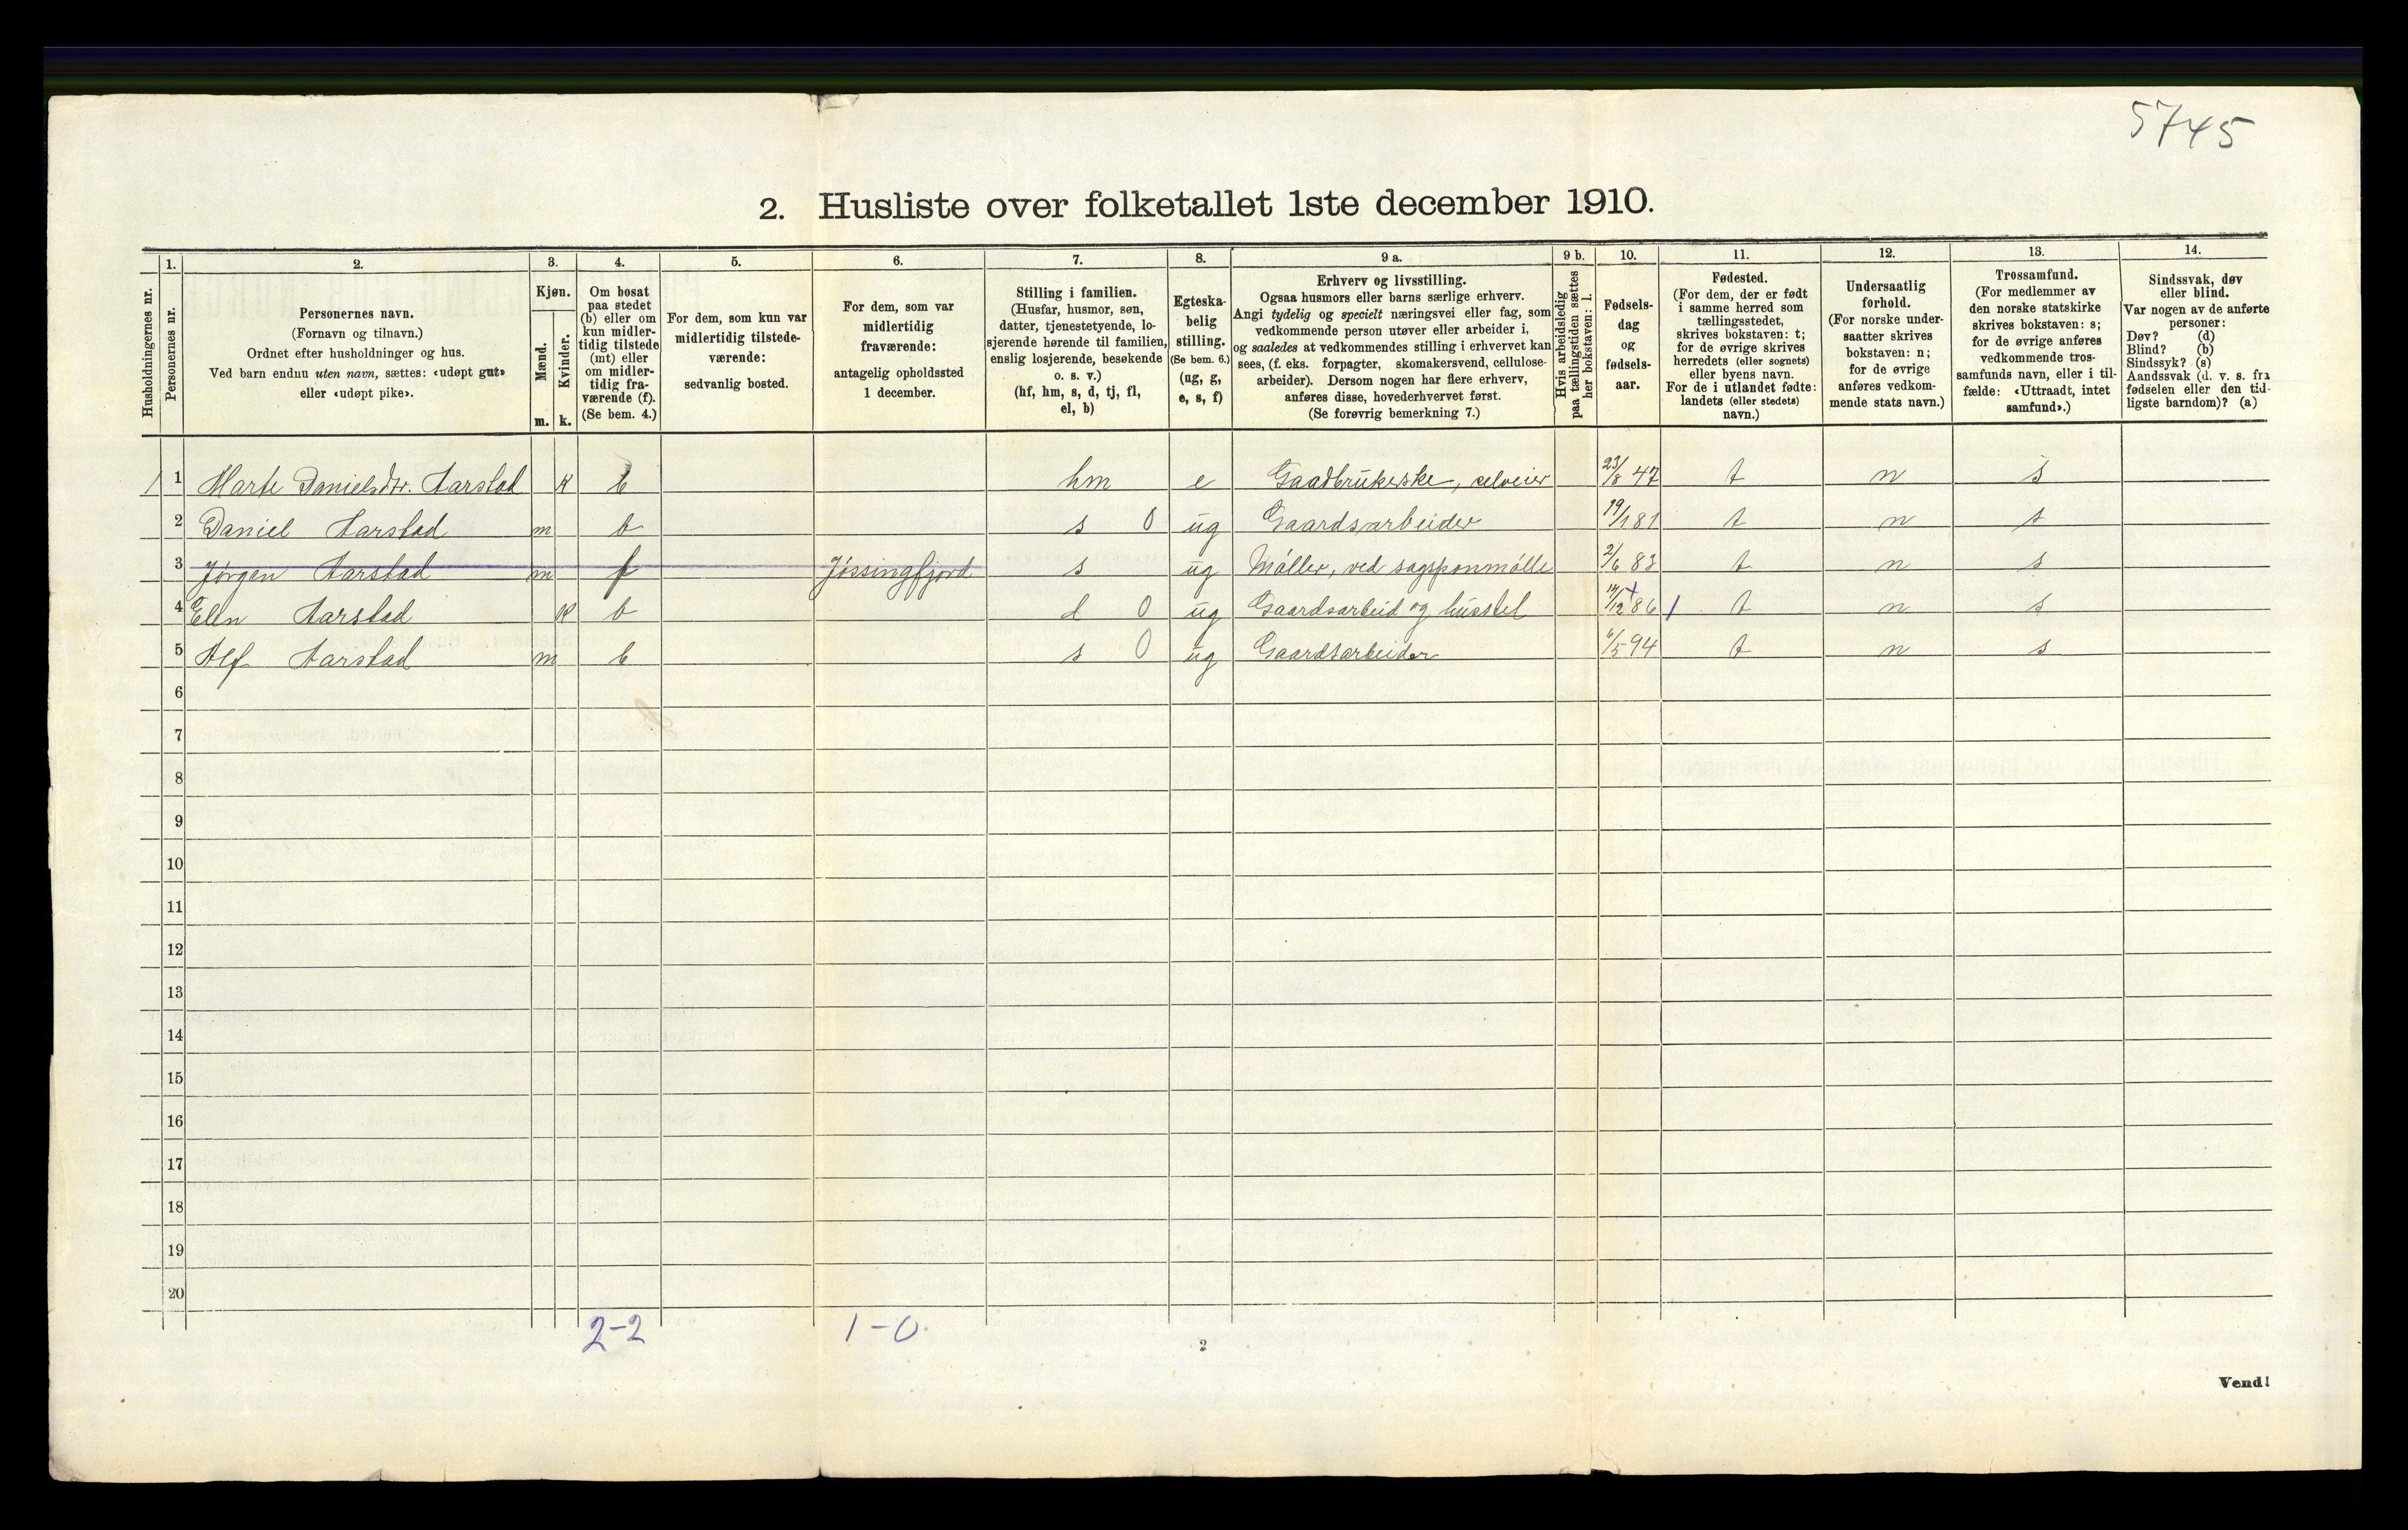 5745
2. Husliste over folketallet 1ste december 1910.
Husholdningernes nr.
1.
Personernes nr.
2.
Personernes navn.
(Fornavn og tilnavn.)
Ordnet efter husholdninger og hus.
Ved barn endnu uten navn, sættes: «udøpt gut»
eller «udøpt pike».
3.
Kjøn.
Mænd.
m.
Kvinder.
k.
4.
Om bosat
paa stedet
(b) eller om
kun midler-
tidig tilstede
(mt) eller
om midler-
tidig fra-
værende (f).
(Se bem. 4.)
5.
For dem, som kun var
midlertidig tilstede-
værende:
sedvanlig bosted.
6.
For dem, som var
midlertidig
fraværende:
antagelig opholdssted
1 december.
7.
Stilling i familien.
(Husfar, husmor, søn,
datter, tjenestetyende, lo-
sjerende hørende til familien,
enslig losjerende, besøkende
o. s. v.)
(hf, hm, s, d, tj, fl,
el, b)
8.
Egteska-
belig
stilling.
(Se bem. 6.)
(ug, g,
e, s, f)
9 a.
Erhverv og livsstilling.
Ogsaa husmors eller barns særlige erhverv.
Angi tydelig og specielt næringsvei eller fag, som
vedkommende person utøver eller arbeider i,
og saaledes at vedkommendes stilling i erhvervet kan
sees, (f. eks. forpagter, skomakersvend, cellulose-
arbeider). Dersom nogen har flere erhverv,
anføres disse, hovederhvervet først.
(Se forøvrig bemerkning 7.)
9 b.
Hvis arbeidsledig
paa tællingstiden sættes
her bokstaven: l.
10.
Fødsels-
dag
og
fødsels-
aar.
11.
Fødested.
(For dem, der er født
i samme herred som
tællingsstedet,
skrives bokstaven: t;
for de øvrige skrives
herredets (eller sognets)
eller byens navn.
For de i utlandet fødte:
landets (eller stedets)
navn.)
12.
Undersaatlig
forhold.
(For norske under-
saatter skrives
bokstaven: n;
for de øvrige
anføres vedkom-
mende stats navn.)
13.
Trossamfund.
(For medlemmer av
den norske statskirke
skrives bokstaven: s;
for de øvrige anføres
vedkommende tros-
samfunds navn, eller i til-
fælde: «Uttraadt, intet
samfund».)
14.
Sindssvak, døv
eller blind.
Var nogen av de anførte
personer:
Døv? (d)
Blind? (b)
Sindssyk? (s)
Aandssvak (d. v. s. fra
fødselen eller den tid-
ligste barndom)? (a)
1 1 Marte Danielsdtr. Aarstad K b hm e Gaadbrukerske, selveier 23/8 47 t n s
2 Daniel Aarstad m b s 0 ug Gaardsarbeider 19/1 81 t n s
3 Jørgen Aarstad m f Jøssingfjord s ug Møller, ved sagsponmølle 2/6 83 t n s
4 Elen Aarstad K b d 0 ug Gaardsarbeid og husstel 14/12 86 t n s
5 Alf Aarstad m b s 0 ug Gaardsarbeider 6/5 94 t n s
6
7
8
9
10
11
12
13
14
15
16
17
18
19
20
2-2 1-0
2
Vend!